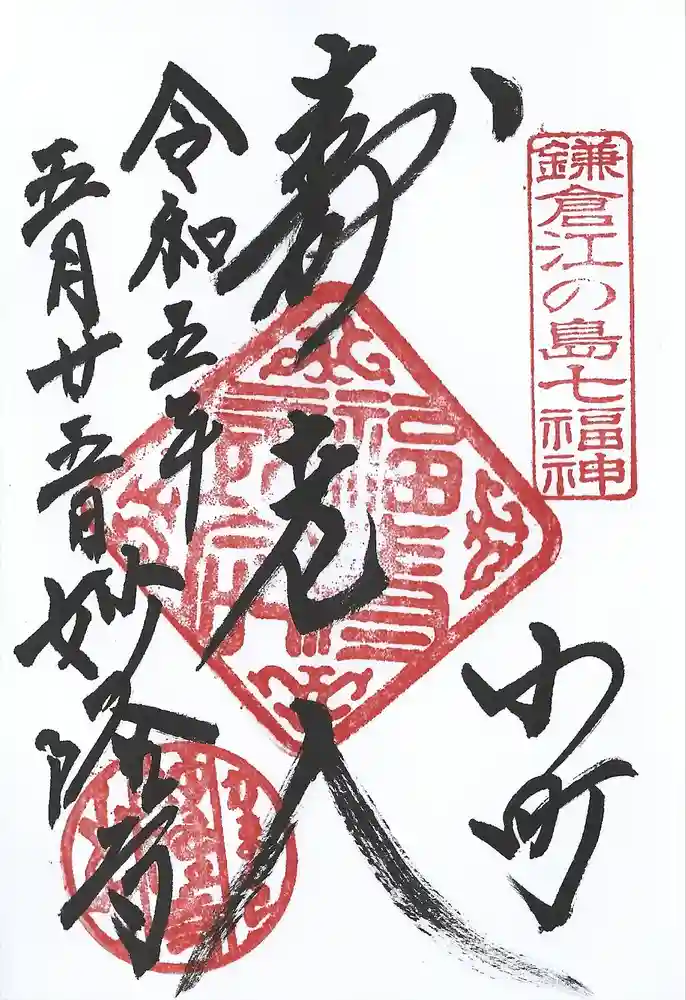 鎌倉江の島七福神
小町
寿老人
令和五年
五月廿五日
妙隆寺